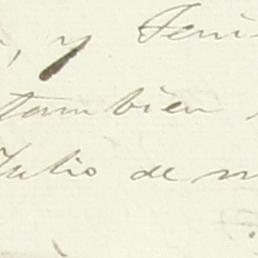 , y Feni
tambien
Julio de m